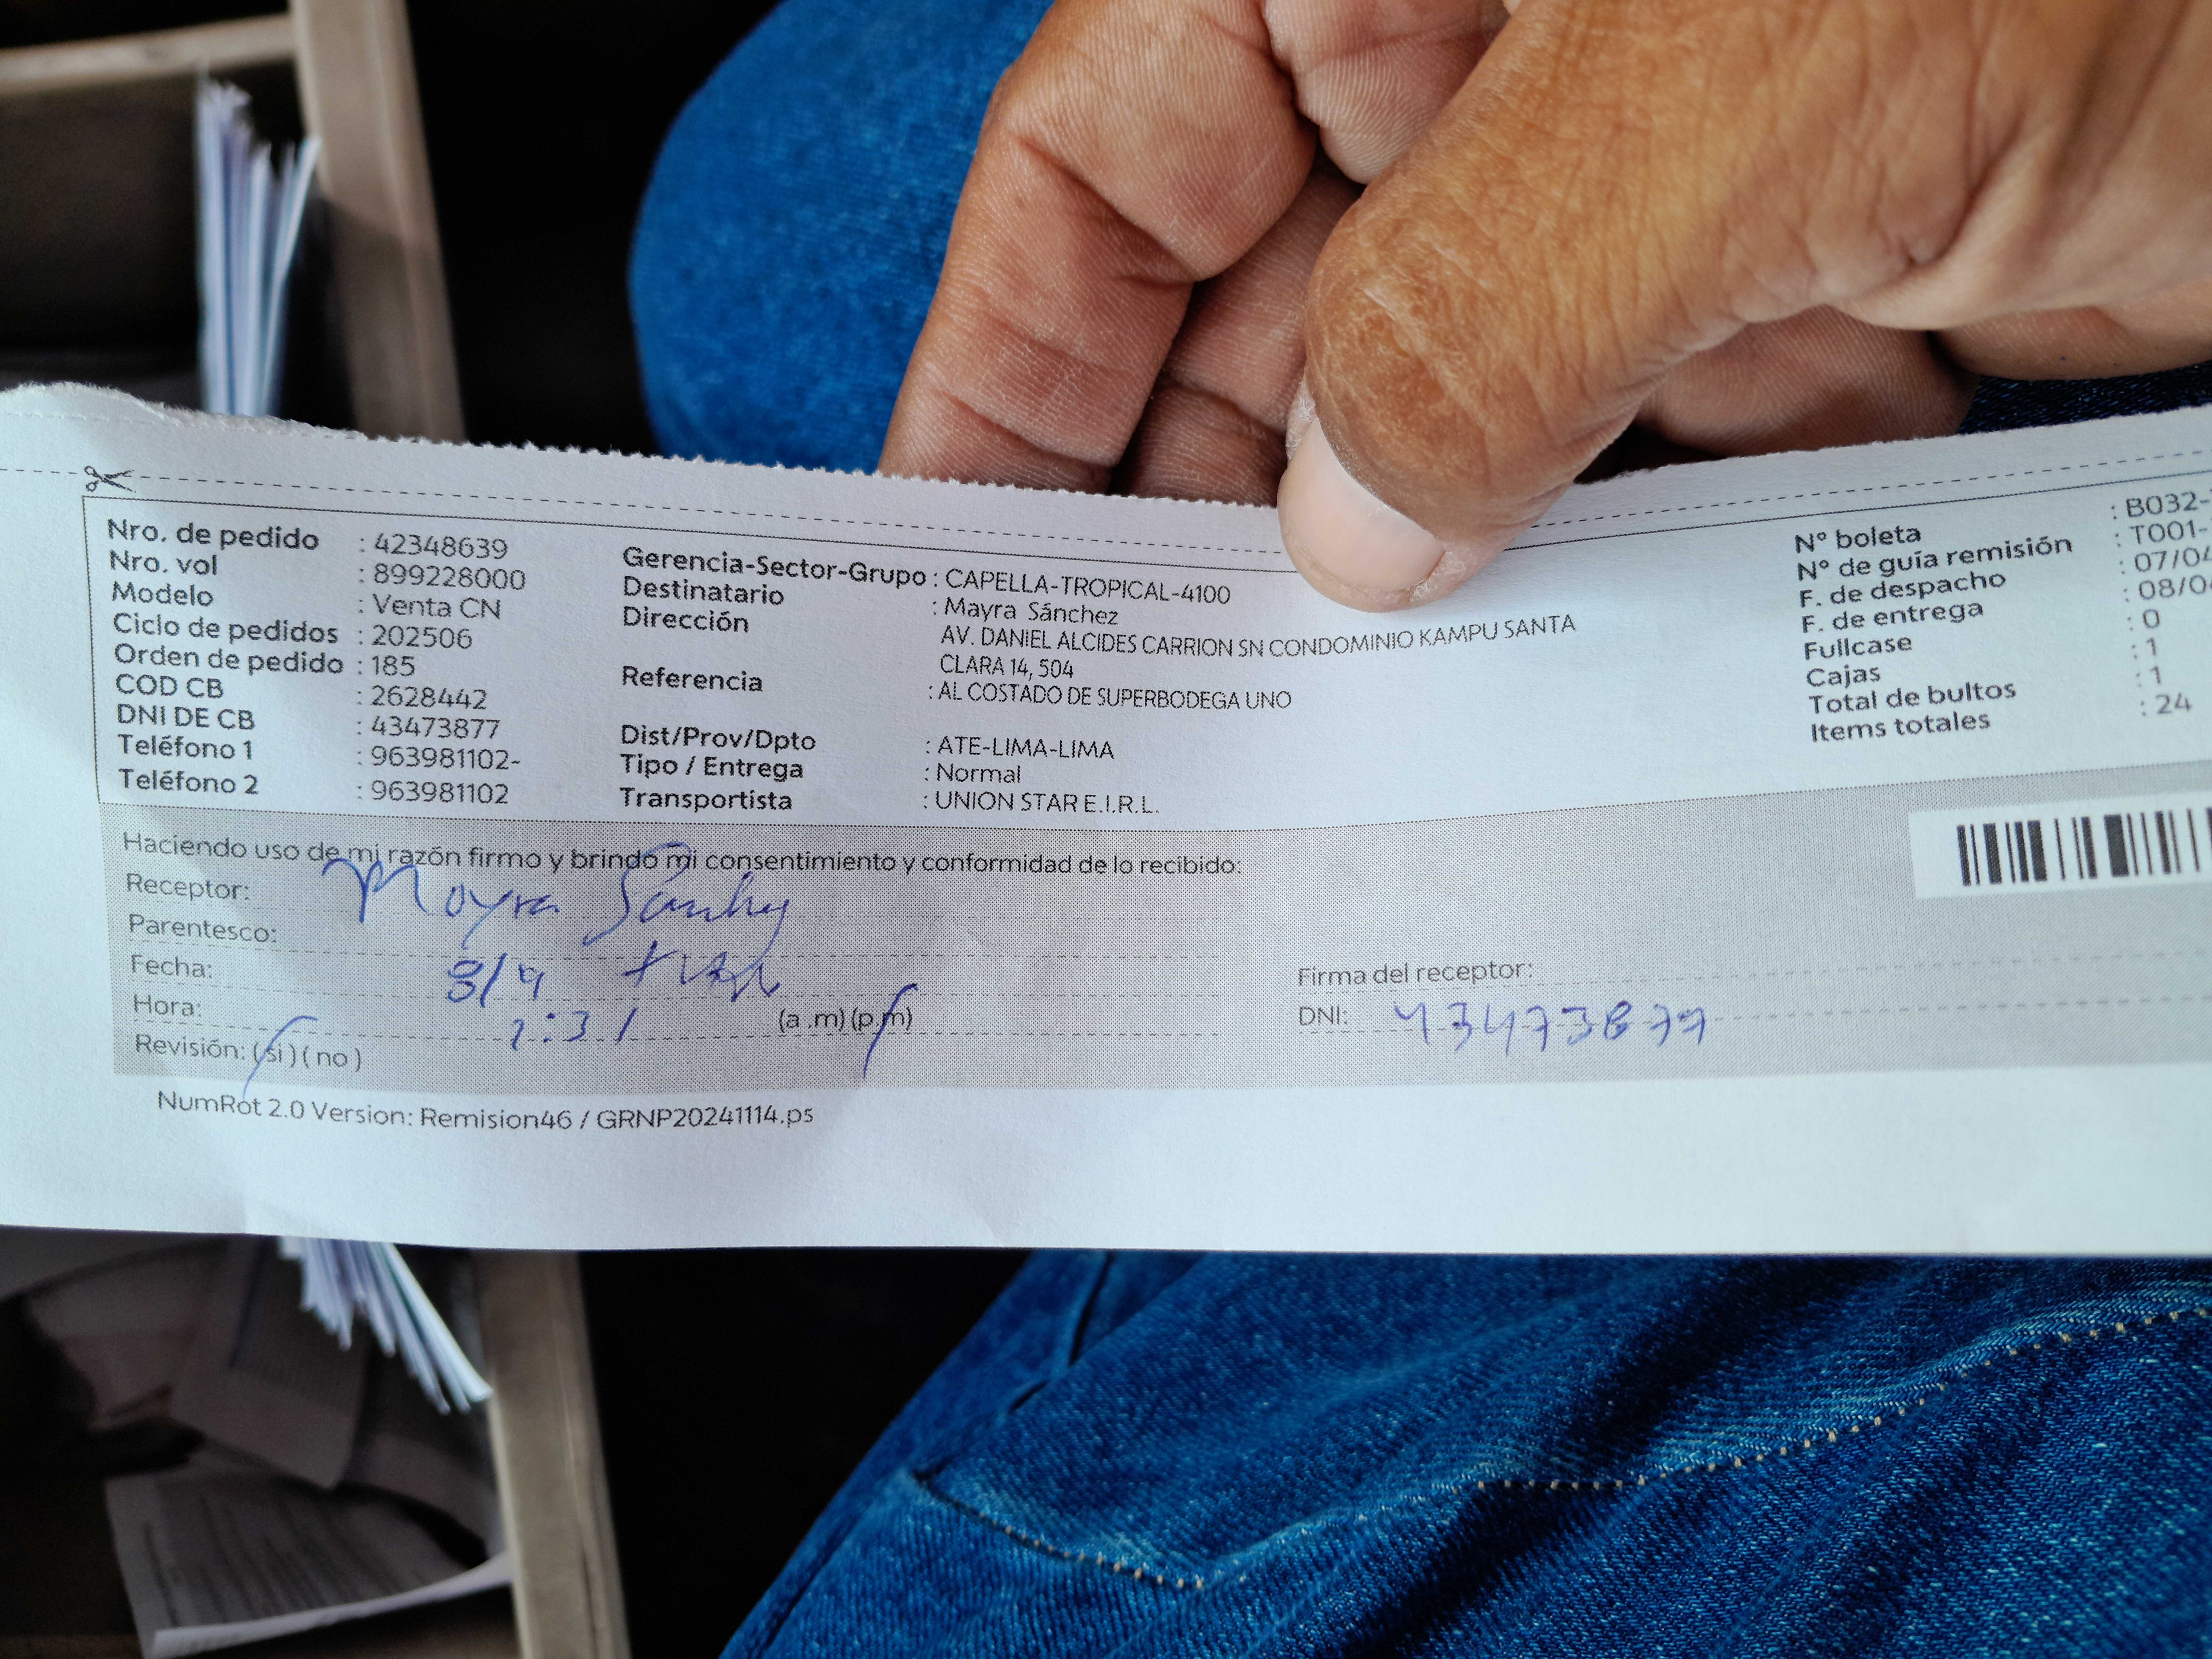 Nro. de pedido : 42348639
Nro. vol : 899228000
Modelo : Venta CN
Ciclo de pedidos : 202506
Orden de pedido : 185
COD CB : 2628442
DNI DE CB : 43473877
Teléfono 1 : 963981102-
Teléfono 2 : 963981102
Gerencia-Sector-Grupo : CAPELLA-TROPICAL-4100
Destinatario : Mayra Sánchez
Dirección AV. DANIEL ALCIDES CARRION SN CONDOMINIO KAMPU SANTA
CLARA 14, 504
Referencia : AL COSTADO DE SUPERBODEGA UNO
Dist/Prov/Dpto : ATE-LIMA-LIMA
Tipo / Entrega : Normal
Transportista : UNION STAR E.I.R.L.
N° boleta : B032-
N° de guía remisión : T001-
F. de despacho : 07/04
F. de entrega : 08/0
Fullcase : 0
Cajas : 1
Total de bultos : 1
Items totales : 24
Haciendo uso de mi razón firmo y brindo mi consentimiento y conformidad de lo recibido:
Receptor: Mayra Sanchez
Parentesco:
Fecha: 8/4
Hora: 1:31 (a .m) (p.m)
Revisión: ( si ) ( no )
Firma del receptor:
DNI: 43473877
NumRot 2.0 Version: Remision46 / GRNP20241114.ps